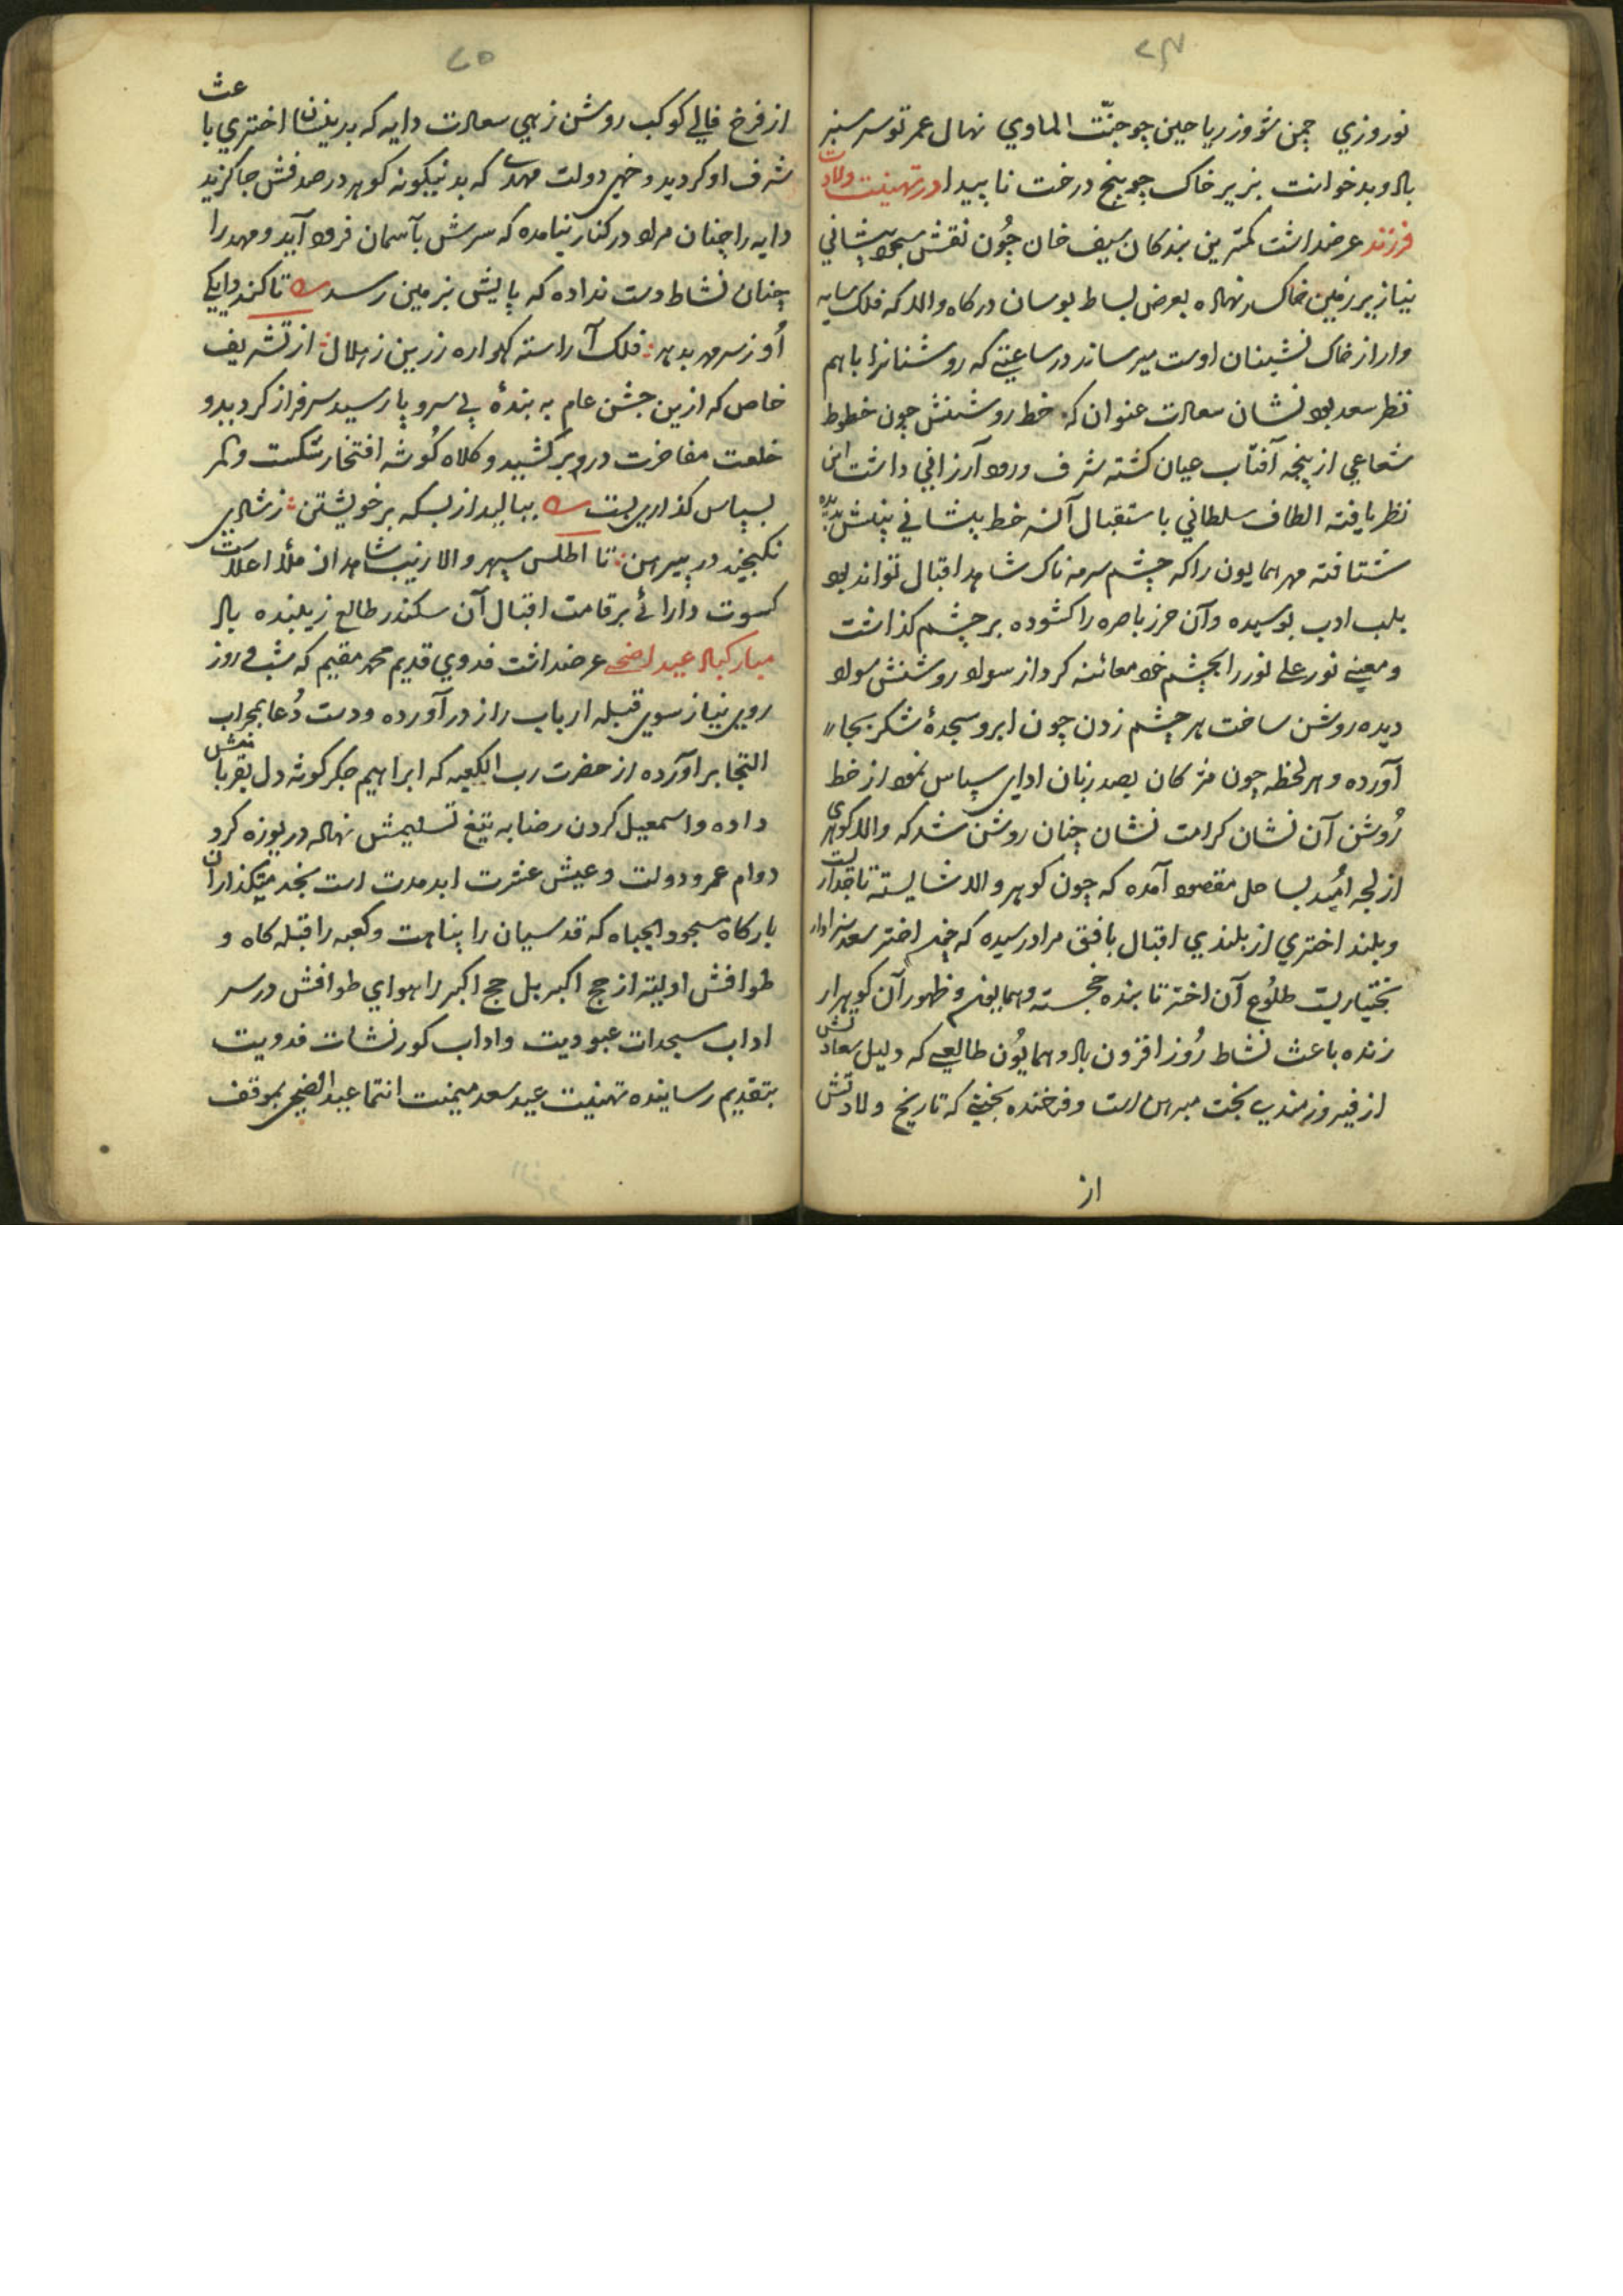 ۲۴
نوروزي چمن شود ز رياحين چو جنّت الماوي نهال عمر تو سرسبز
باد و بدخوانت بزير خاک چو بيخ درخت ناپيدا در تهنيت ولادت
فرزند عرضداشت کمترين بندکان سيف خان چُون نقش سجود پيشاني
نياز بر زمين خاکسار نهاده بعرض بساط بوسان درکاه والا که فلک سايه
وار از خاک نشينان اوست ميرساند در ساعتي که روشنانرا باهم
نظر سعد بود نشان سعادت عنوان که خط روشنش چون خطوط
شعاعي از پنجه آفتاب عيان کشته شرف ورود آرزاني داشت اين
نظر يافته الطاف سلطاني باستقبال آن خط پيشاني پيش
شتافته مهر همايون را که چشم سرمه ناک شاهد اقبال تواند بود
بلب ادب بوسيده وآن حرز باصره را کشوده بر چشم کذاشت
و معني نور علي نور را بچشم خود معائنه کرد از سواد روشنش سواد
ديده روشن ساخت هر چشم زدن چون ابرو سجدهٔ شکر بجا
آورده و هر لحظه چون مژکان بصد زبان اداي سپاس نمود از خط
رُوشن آن نشان کرامت نشان چنان روشن شد که والا کوهري
از لجه اُميد بساحل مقصود آمده که چون کوهر والا شايسته تاجداريست
و بلند اختري از بلندي اقبال بافق مراد رسيده که چون اختر سعد سزاوار
بختياريست طلُوع آن اختر تابنده خجسته و همايون و ظهور آن کوهر ار
زنده باعث نشاط رُوز افزون باد همايُون طالعي که دليل سعادتش
از فيروزمندي بخت مبرهن است و فرخنده بختي که تاريخ ولادتش
از
۲۵
از فرخ فالي کوکب روشن زهي سعادت دايه که بدينسان اختري باعث
شرف او کرديد و خهي دولت مهدي که بدنيکونه کوهر در صدفش جا کزيد
دايه را چنان مراد در کنار نيامده که سرش بآسمان فرود آيد و مهد را
چنان نشاط دست نداده که پايش بزمين رسد تا کند دايکي
اُو ز سر مهر بدهر فلک آراسته کهواره زرين ز هلال از تشريف
خاص که ازين جشن عام به بندهٔ بي سر و پا رسيد سرفراز کرديد و
خلعت مفاخرت در و بر کشيد و کلاه کُوشه افتخار شکست و کمر
بسپاس کذاري بست ببالید از بسکه بر خويشتن ز شادي
نکنجيد در پيرهن تا اطلس سپهر والا زيب شاهدان ملأ اعلاست
کسوت دارائي بر قامت اقبال آن سکندر طالع زيبنده باد
مبارکباد عيد اضحي عرضداشت فدوي قديم محمد مقيم که شب و روز
روي نياز سوي قبله ارباب راز در آورده و دست دُعا بمحراب
التجا برآورده از حضرت رب الکعبه که ابراهيم جکر کوشه دل بقربانش
داده و اسمعيل کردن رضا به تيغ تسليمش نهاده دريوزه کرد
دوام عمر و دولت و عيش عشرت ابد مدت است بخدمتکذاران
بارکاه مسجود الجباه که قدسيان را پناهست و کعبه را قبله کاه و
طوافش اوليتر از حج اکبر بل حج اکبر را هواي طوافش در سر
اداب سجدات عبوديت و اداب کورنشات فدويت
بتقديم رسانيده تهنيت عيد سعد ميمنت انتما عيد الضحي بموقف